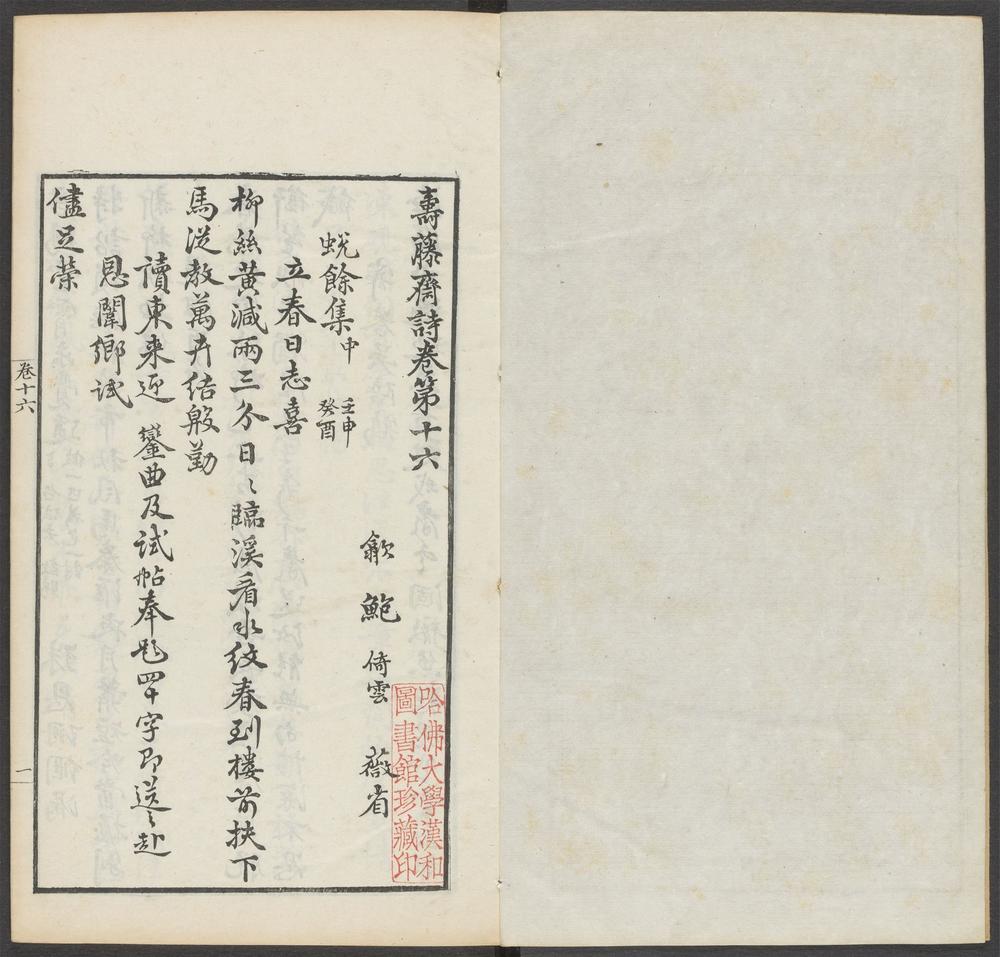 壽藤齋詩卷第十六
歙 鮑 倚雲 薇省
蛻餘集中 壬申
癸酉
立春日志喜
柳絲黃減兩三分日〻臨溪看水紋春到樓前扶下
馬從教萬卉结殷勤
讀東来迎 鑾曲及试帖奉题四十字即送〻赴
恩闈鄉试
儘足榮
卷十六
一
哈佛大學漢和
圖書館珍藏印